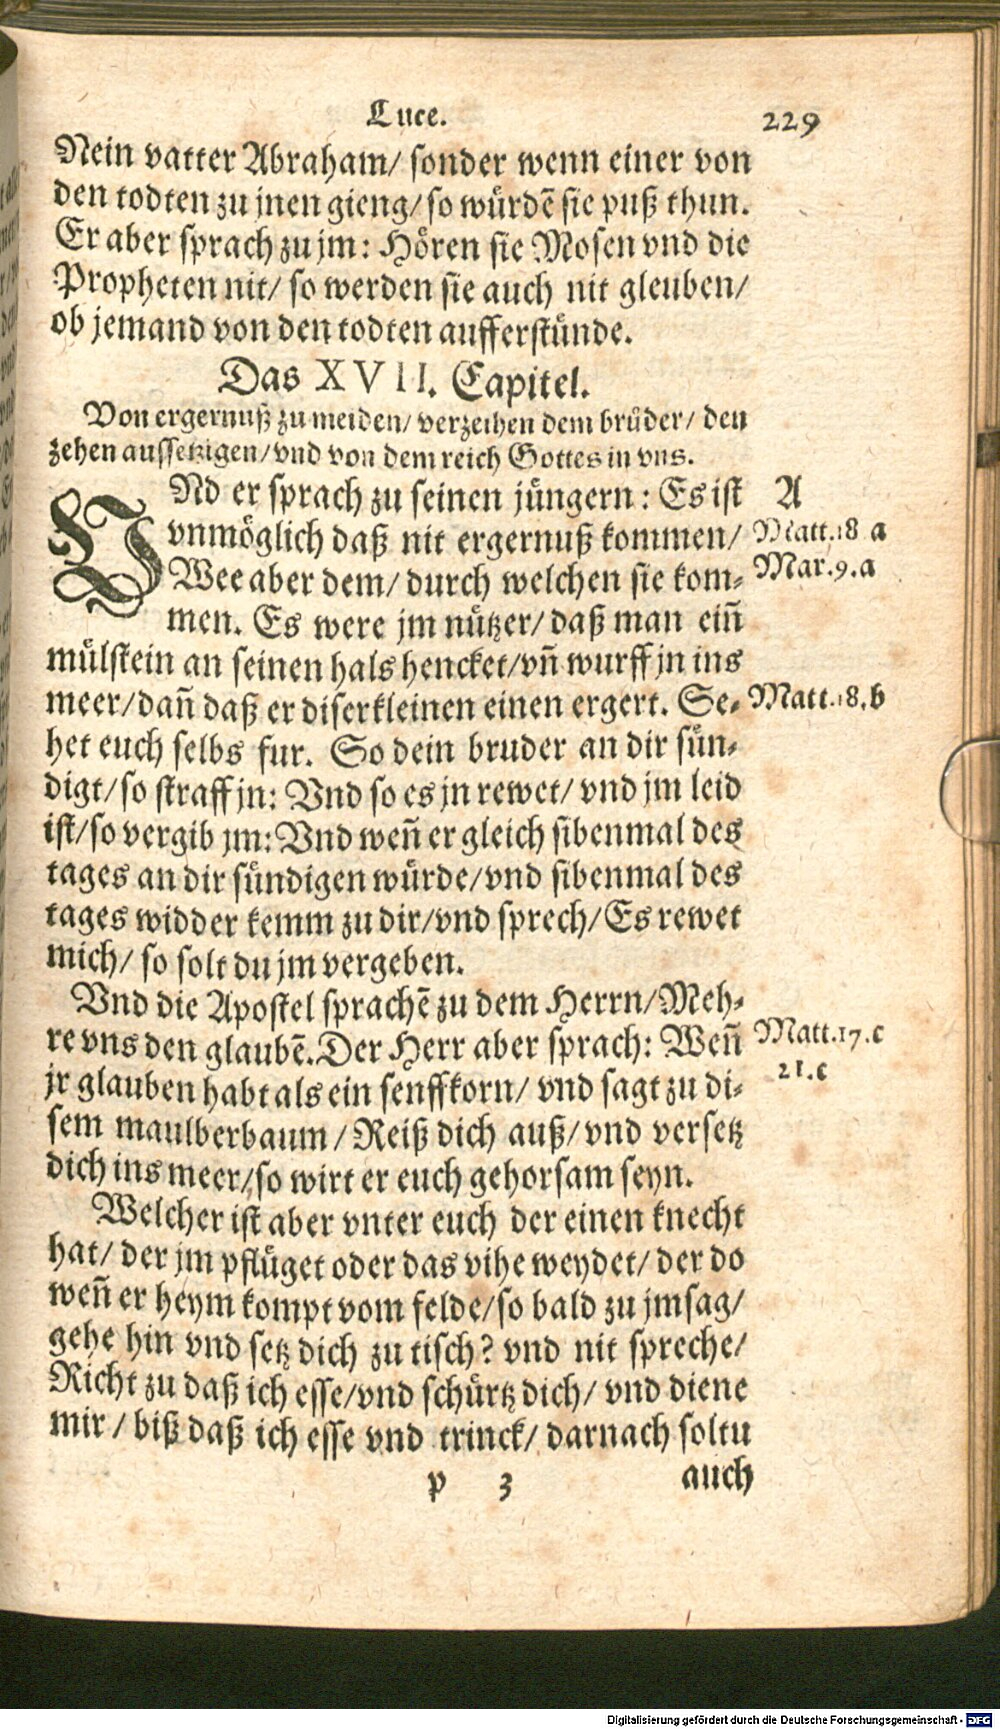 Luce. 229
Nein vatter Abraham/ sonder wenn einer von
den todten zu jnen gieng/ so würdē sie puß thun.
Er aber sprach zu jm: Hören sie Mosen vnd die
Propheten nit/ so werden sie auch nit gleuben/
ob jemand von den todten aufferstünde.
Das XVII. Capitel.
Von ergernuß zu meiden/ verzeihen dem brůder/ den
zehen aussetzigen/ vnd von dem reich Gottes in vns.
VNd er sprach zu seinen jüngern: Es ist A
vnmöglich daß nit ergernuß kommen/ Matt.18 a
Wee aber dem/ durch welchen sie kom= Mar.9.a
men. Es were jm nützer/ daß man eiñ
mülstein an seinen hals hencket/ vñ wurff jn ins
meer/ dañ daß er diser kleinen einen ergert. Se= Matt.18.b
het euch selbs fur. So dein bruder an dir sün=
digt/ so straff jn: Vnd so es jn rewet/ vnd jm leid
ist/ so vergib jm: Vnd weñ er gleich sibenmal des
tages an dir sündigen würde/ vnd sibenmal des
tages widder kemm zu dir/ vnd sprech/ Es rewet
mich/ so solt du jm vergeben.
Vnd die Apostel sprachē zu dem Herrn/ Meh=
re vns den glaubē. Der Herr aber sprach: Weñ Matt.17.c
jr glauben habt als ein senffkorn/ vnd sagt zu di= 21.c
sem maulberbaum/ Reiß dich auß/ vnd versetz
dich ins meer/ so wirt er euch gehorsam seyn.
Welcher ist aber vnter euch der einen knecht
hat/ der jm pflüget oder das vihe weydet/ der do
weñ er heym kompt vom felde/ so bald zu jm sag/
gehe hin vnd setz dich zu tisch? vnd nit spreche/
Richt zu daß ich esse/ vnd schürtz dich/ vnd diene
mir/ biß daß ich esse vnd trinck/ darnach soltu
p 3 auch
Digitalisierung gefördert durch die Deutsche Forschungsgemeinschaft - DFG